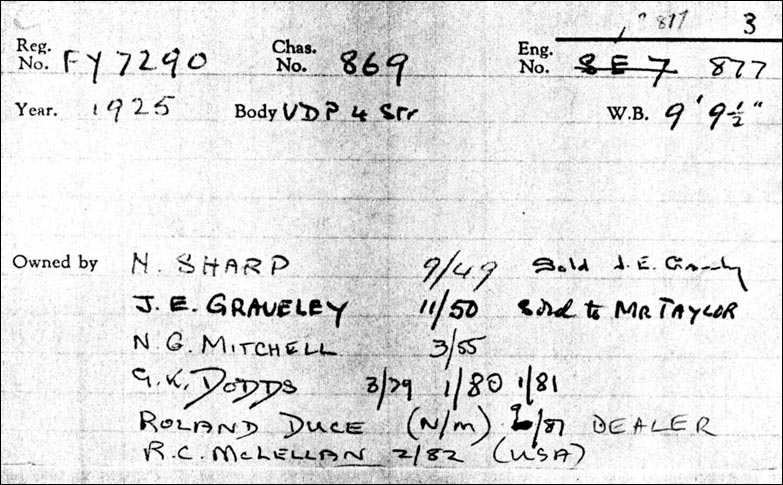 ? 877 3
Reg. No. FY 7290 Chas. No. 869 Eng. No. S E 7 877
Year. 1925 Body VDP 4 Str W.B. 9' 9½"
Owned by N. SHARP 9/49 Sold J. E.
J. E. GRAVELEY 11/50 Sold to MR TAYLOR
N. G. MITCHELL 3/55
G. K. DODDS 3/79 1/80 1/81
ROLAND DUCE (N/M) /81 DEALER
R. C. MCLELLAN 2/82 (USA)